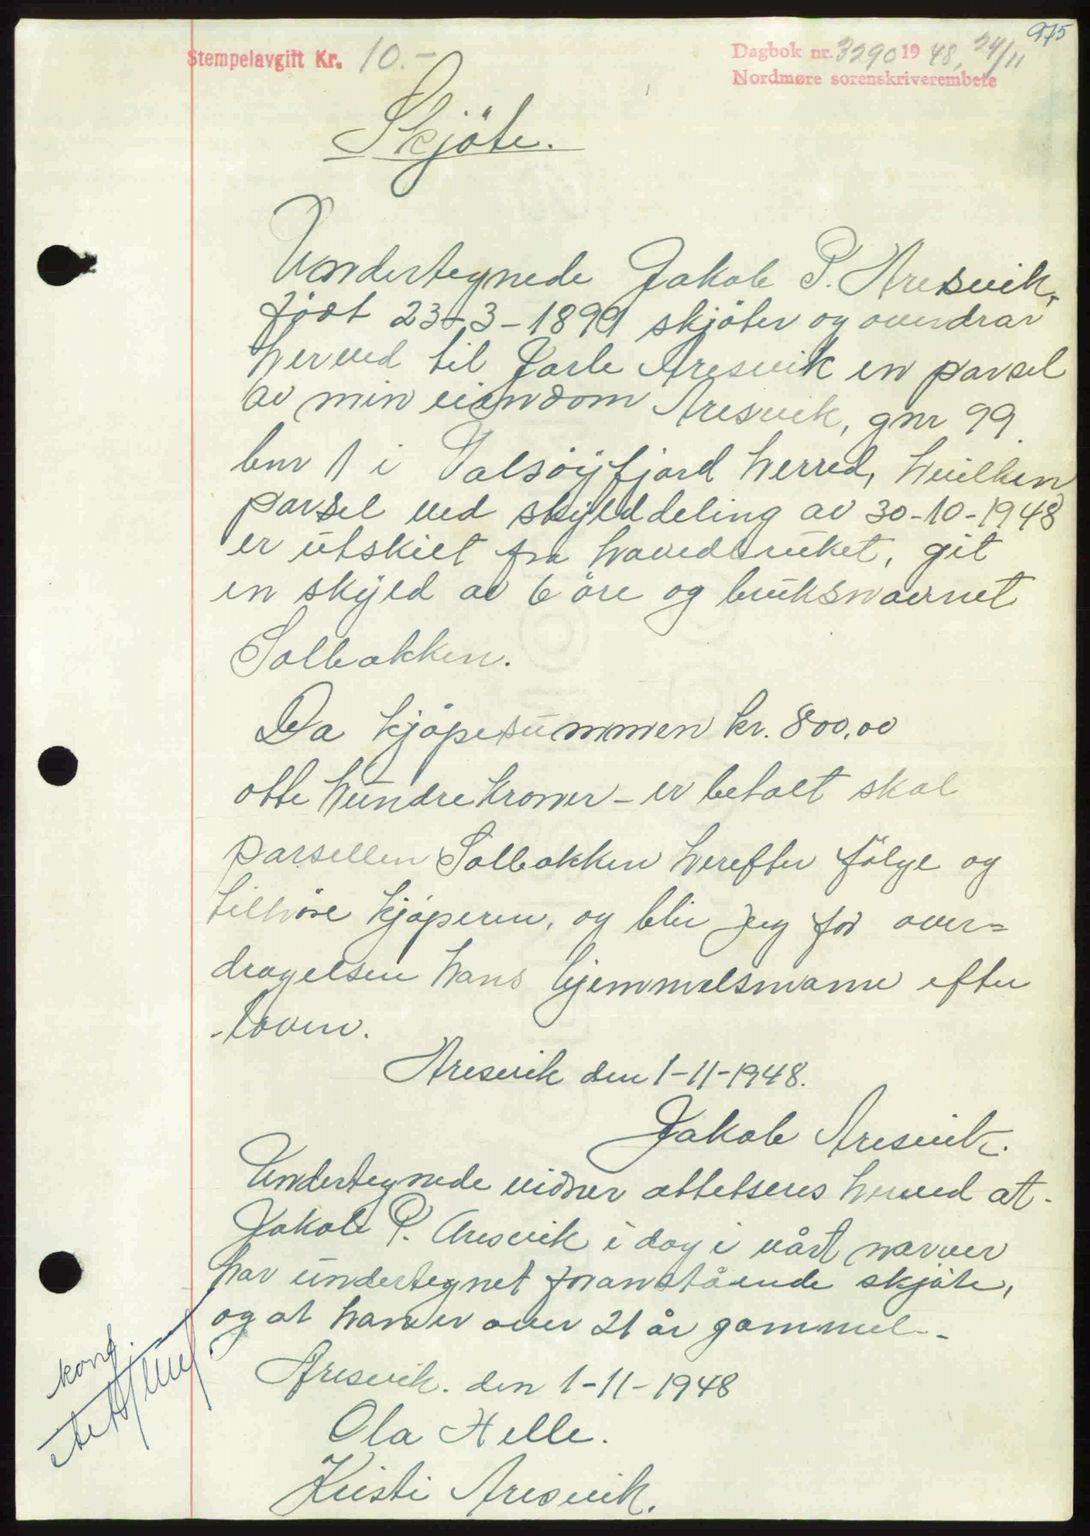 975
Stempelavgift Kr. 10.-
Dagbok nr. 3290 1948, 24/11
Nordmøre sorenskriverembete
Skjöte.
Undertegnede Jakob P. Aresvik,
födt 23-3-1899 skjöter og overdrar
herved til Jarle Aresvik en parsel
av min eiendom Aresvik, gnr 99
bnr 1 i Valsöyfjord herred, hvilken
parsel ved skylddeling av 30-10-1948
er utskilt fra hovedbruket, git
en skyld av 6 öre og bruksnavnet
Solbakken.
Da kjöpesummen kr. 800,00
otte hundre kroner - er betalt skal
parsellen Solbakken herefter fölge og
tilhöre kjöperen, og blir jeg for over=
dragelsen hans hjemmelsmann efter
loven.
Aresvik den 1-11-1948.
Jakob Aresvik.
Undertegnede vidner attesteres herved at
Jakob P. Aresvik i dag i vårt nærver
har undertegnet foranstående skjöte,
og at han er over 21 år gammel.
Aresvik. den 1-11-1948
Ola Helle.
Kristi Aresvik.
konf.